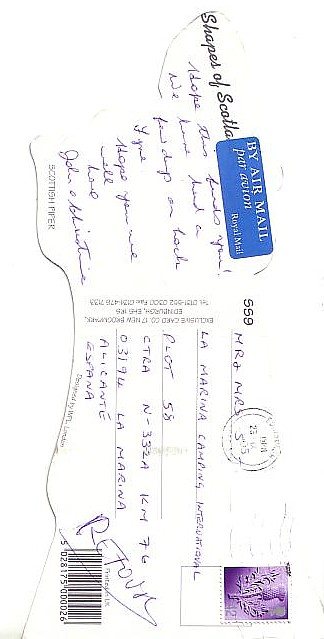 Shapes of Scotland
BY AIR MAIL
par avion
Royal Mail
Hope this finds you!
We have had a
few days on Loch
Fyne
Hope you are
well
Love
John & Christine
SCOTTISH PIPER
EXCLUSIVE CARD CO. 17 NEW BROOMPARK,
EDINBURGH, EH5 1RS
Tel. 0131-552 0300 Fax: 0131-476 7133
Designed by NPL, London
559
MR & MRS
LA MARINA CAMPING INTERNATIONAL
PLOT 58
CTRA N-332A KM 76
03194 LA MARINA
ALICANTE
ESPAÑA
RETOUR
Printed in UK
5 028175 000026